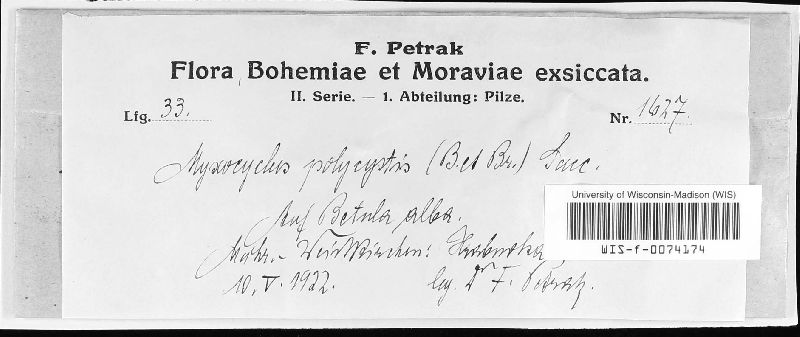 F. Petrak
Flora Bohemiae et Moraviae exsiccata.
II. Serie. — 1. Abteilung: Pilze.
Lfg. 33.
Nr. 1627.
Myxocyclus polycystis (B. et Br.) Sacc.
Auf Betula alba.
Mähr.-Weisskirchen: Hrabuvka
10. V. 1922. leg. Dr F. Petrak.
University of Wisconsin-Madison (WIS)
WIS-f-0074174